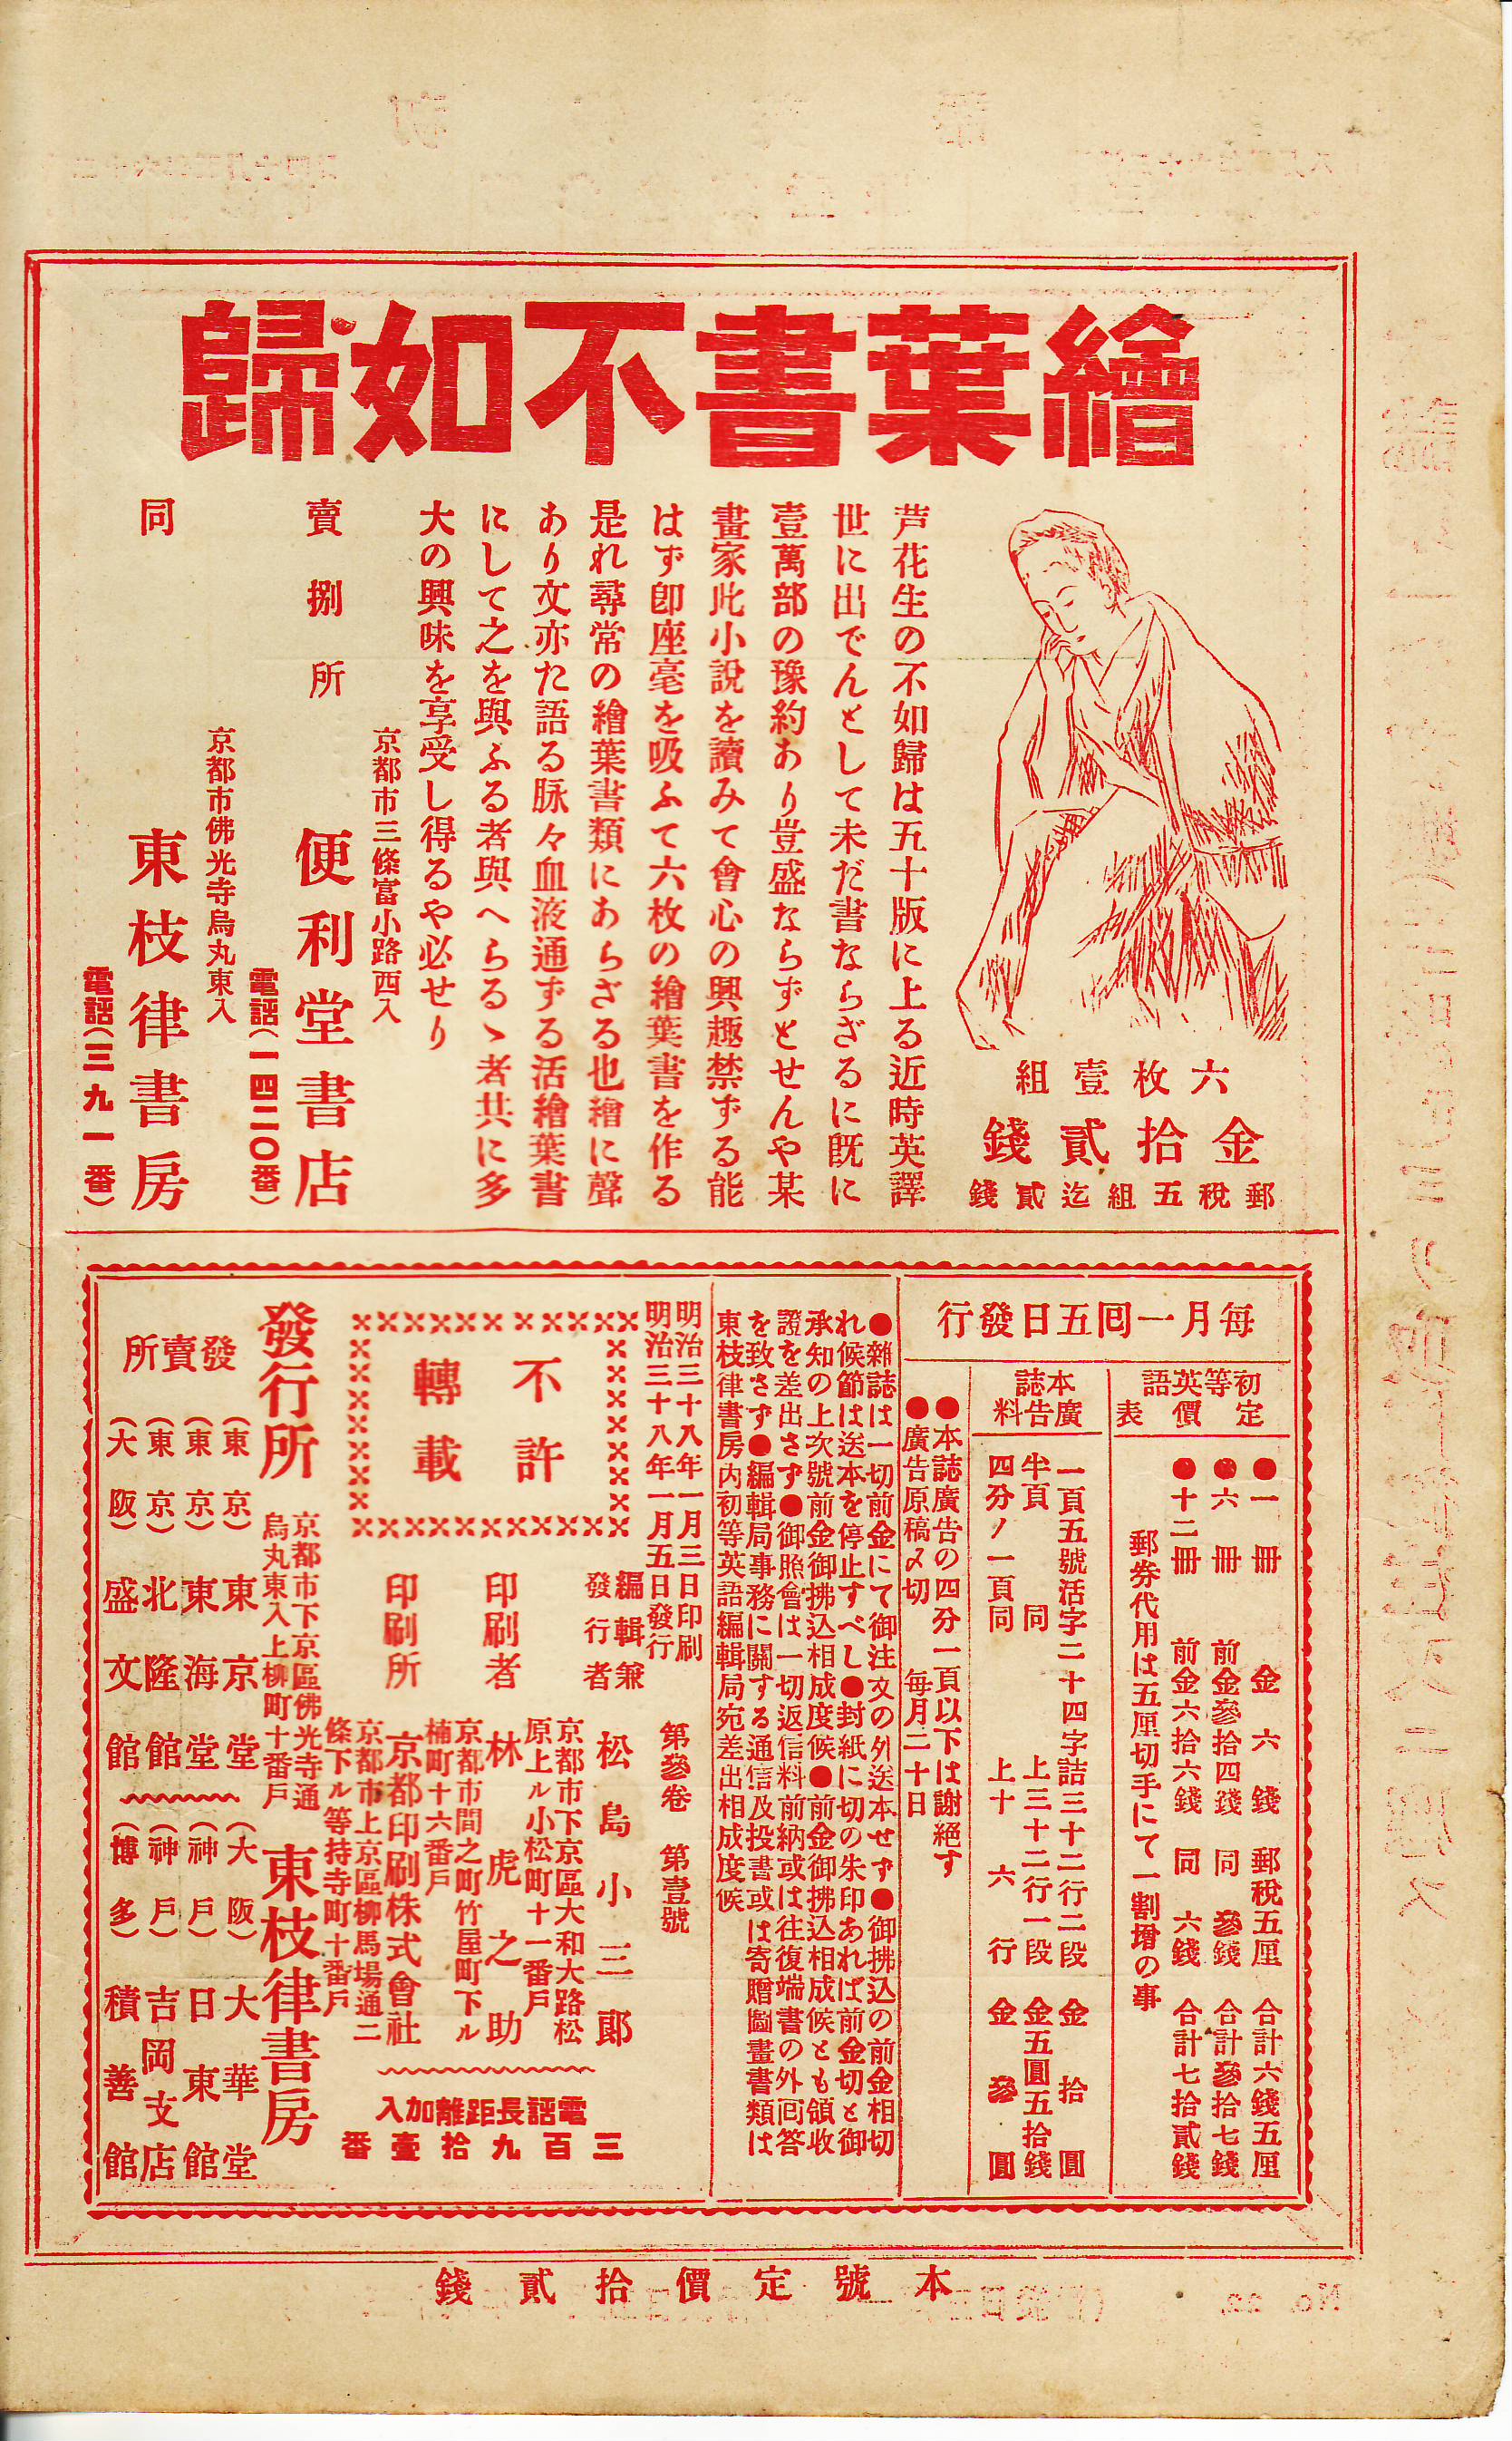 繪葉書不如歸
六枚壹組
金拾貳錢
郵稅五組迄貳錢
芦花生の不如歸は五十版に上る近時英譯
世に出でんとして未だ書ならざるに既に
壹萬部の豫約あり豈盛ならずとせんや某
畫家此小說を讀みて會心の興趣禁ずる能
はず卽座毫を吸ふて六枚の繪葉書を作る
是れ尋常の繪葉書類にあらざる也繪に聲
あり文亦た語る脉々血液通ずる活繪葉書
にして之を與ふる者與へらるゝ者共に多
大の興味を享受し得るや必せり
賣捌所
京都市三條富小路西入
便利堂書店
電話(一四二〇番)
同
京都市佛光寺烏丸東入
東枝律書房
電話(三九一番)
每月一回五日發行
初等英語
定價表
●一冊 金六錢 郵稅五厘 合計六錢五厘
●六冊 前金參拾四錢 同 參錢 合計參拾七錢
●十二冊 前金六拾六錢 同 六錢 合計七拾貳錢
郵券代用は五厘切手にて一割增の事
本誌
廣告料
一頁五號活字二十四字詰三十二行二段 金拾圓
半頁 同 上三十二行一段 金五圓五拾錢
四分ノ一頁同 上十六行 金參圓
●本誌廣告の四分一頁以下は謝絕す
●廣告原稿〆切 每月二十日
●雜誌は一切前金にて御注文の外送本せず●御拂込の前金相切
れ候節は送本を停止すべし●封紙に切の朱印あれば前金切と御
承知の上次號前金御拂込相成度候●前金御拂込相成候とも領收
證を差出さず●御照會は一切返信料前納或は往復端書の外回答
を致さず●編輯局事務に關する通信及投書或は寄贈圖畫書類は
東枝律書房内初等英語編輯局宛差出相成度候
明治三十八年一月三日印刷
明治三十八年一月五日發行
第參卷 第壹號
不許
轉載
編輯兼
發行者
松島小三郎
京都市下京區大和大路松
原上ル小松町十一番戶
印刷者
林虎之助
京都市間之町竹屋町下ル
楠町十六番戶
印刷所
京都印刷株式會社
京都市上京區柳馬場通二
條下ル等持寺町十番戶
電話長距離加入
三百九拾壹番
發行所
京都市下京區佛光寺通
烏丸東入上柳町十番戶
東枝律書房
發賣所
(東京) 東京堂
(東京) 東海堂
(東京) 北隆館
(大阪) 盛文館
(大阪) 大華堂
(神戶) 日東館
(神戶) 吉岡支店
(博多) 積善館
本號定價拾貳錢